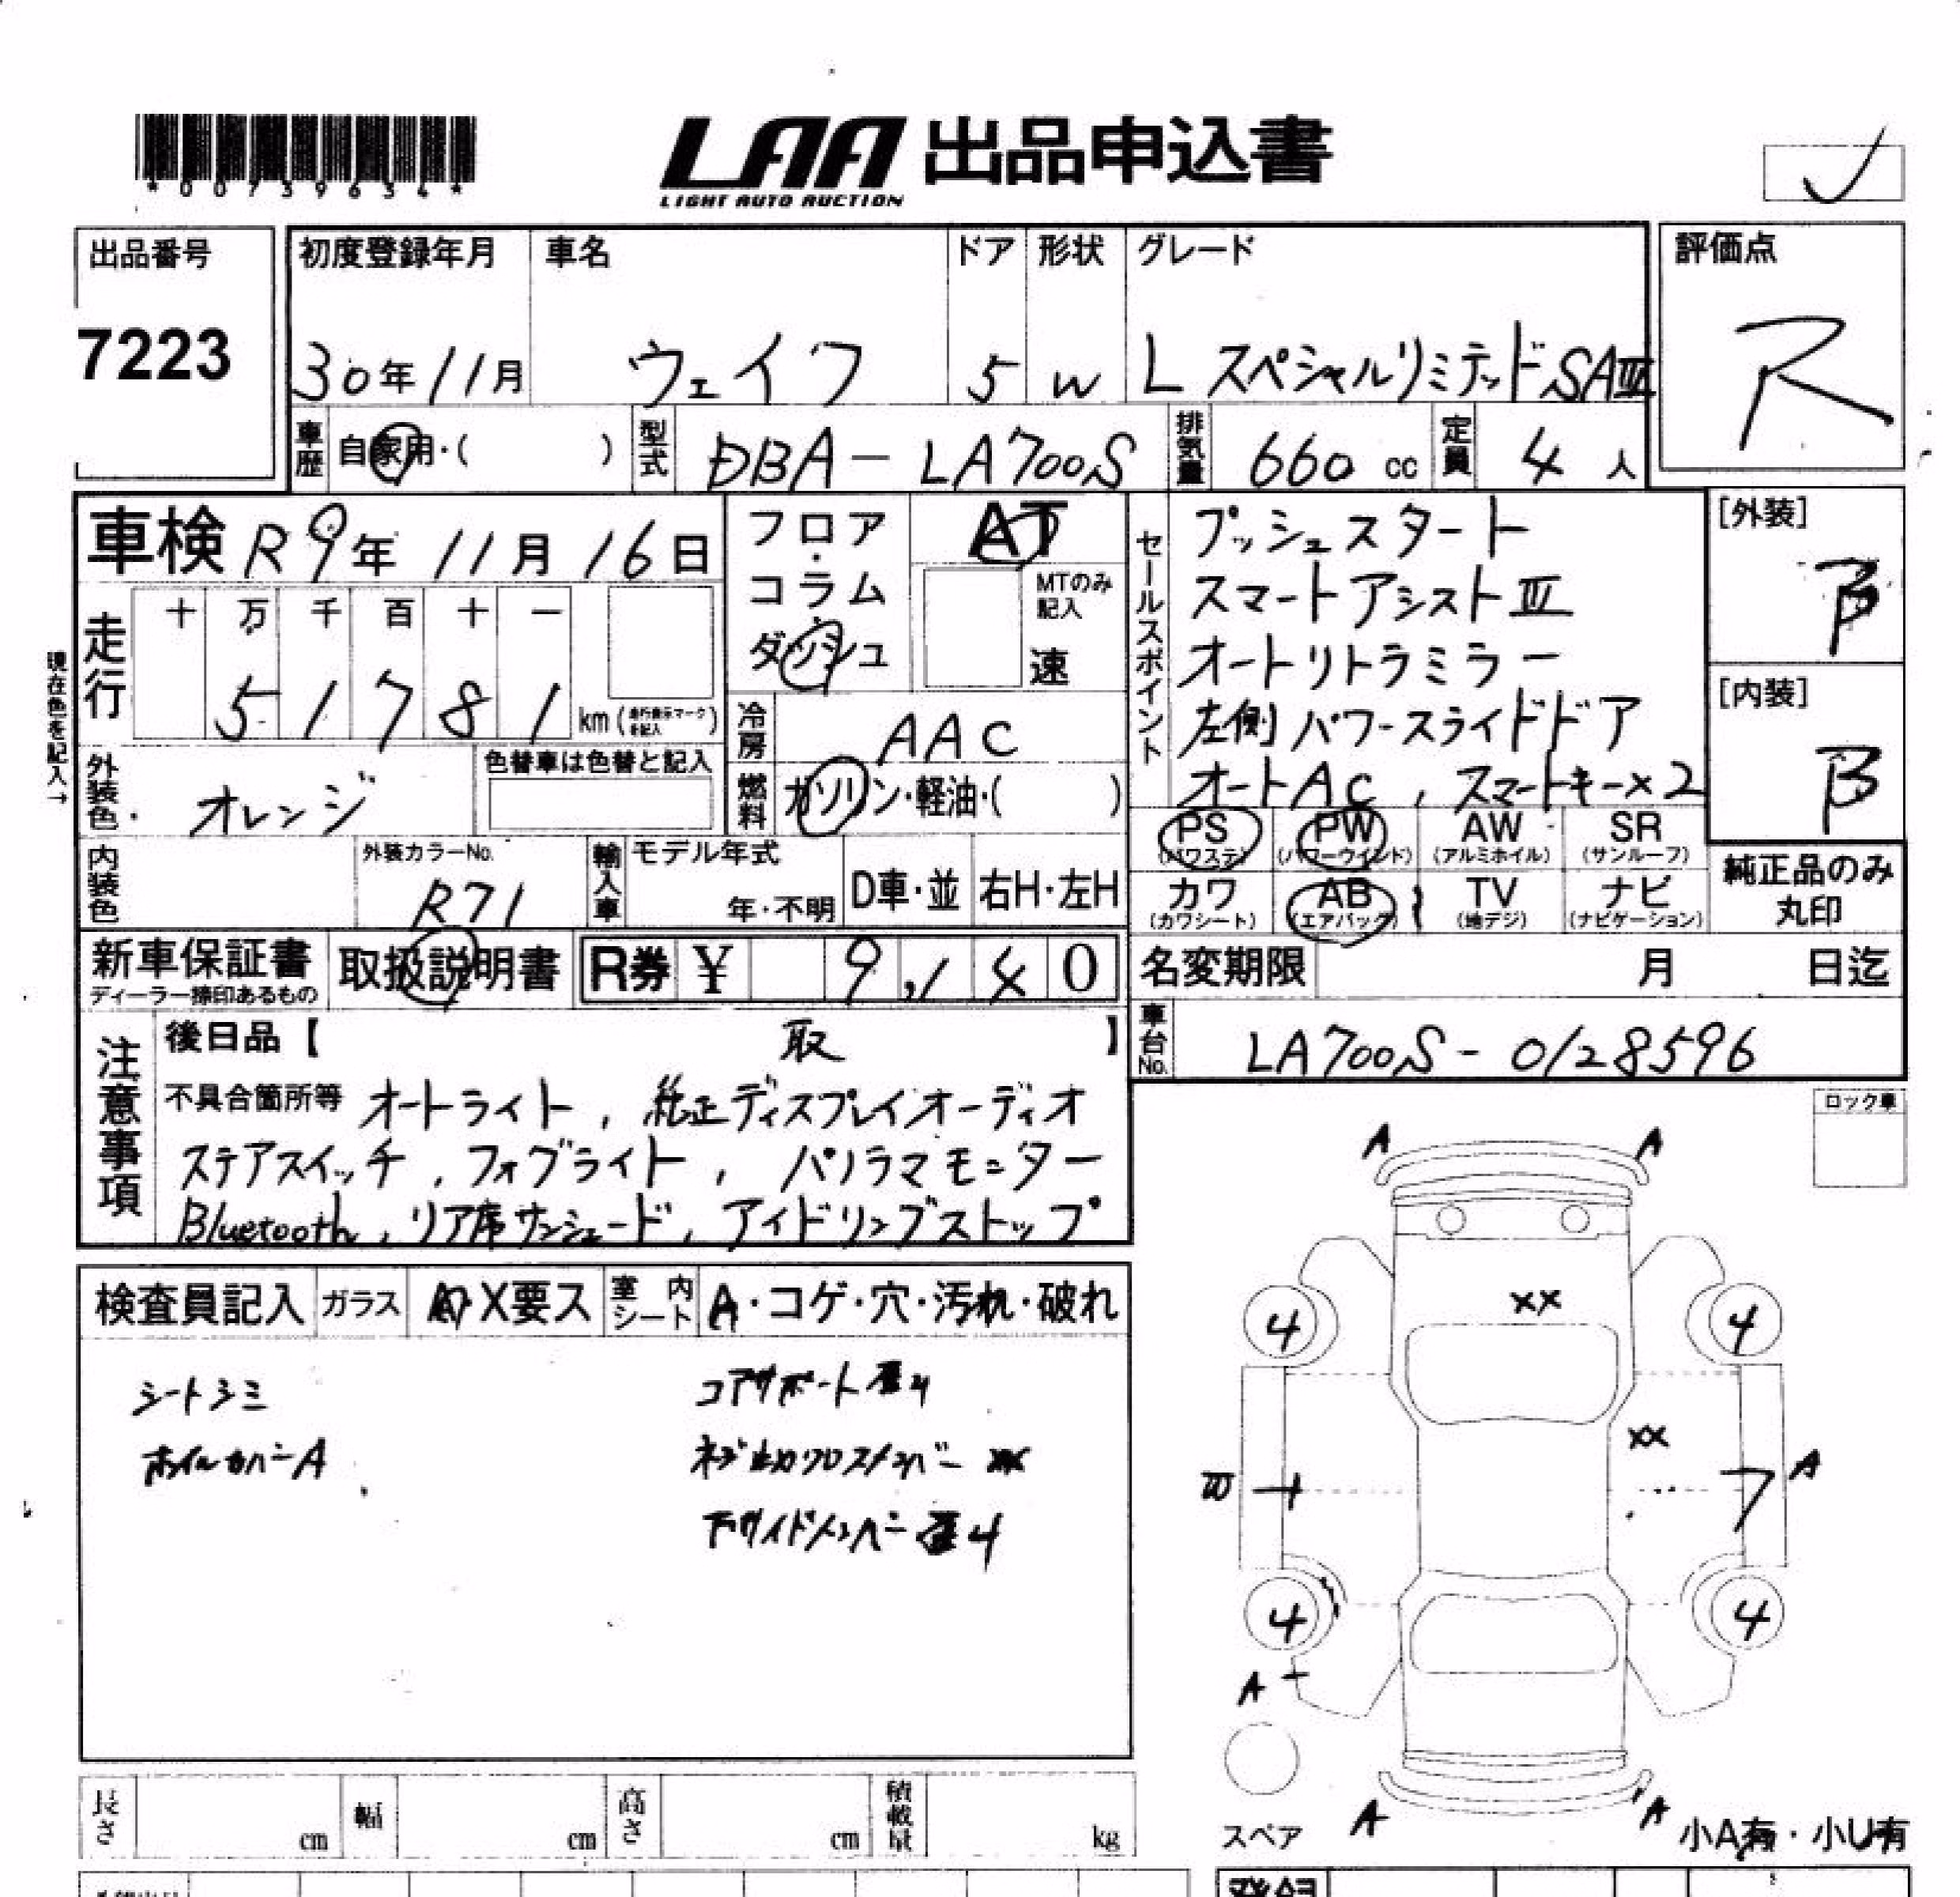 *00739634*
LAA 出品申込書
LIGHT AUTO AUCTION
出品番号
7223
初度登録年月
30年11月
車名
ウェイク
ドア
5
形状
W
グレード
L スペシャルリミテッドSAⅢ
評価点
R
車歴
自家用・( )
型式
DBA-LA700S
排気量
660 cc
定員
4 人
車検 R9年 11月 16日
走行
十 万 千 百 十 一
5 1 7 8 1 km (走行表示マークを記入)
現在色を記入→
外装色
オレンジ
色替車は色替と記入
内装色
外装カラーNo.
R71
フロア・コラム・ダッシュ
AT
MTのみ記入
速
冷房
AAC
燃料
ガソリン・軽油・( )
輸入車
モデル年式
年・不明
D車・並
右H・左H
セールスポイント
プッシュスタート
スマートアシストⅢ
オートリトラミラー
左側パワースライドドア
オートAC, スマートキー×2
[外装]
B
[内装]
B
PS (パワステ)
PW (パワーウインド)
AW (アルミホイル)
SR (サンルーフ)
カワ (カワシート)
AB (エアバック)
TV (地デジ)
ナビ (ナビゲーション)
純正品のみ丸印
新車保証書
ディーラー捺印あるもの
取扱説明書
R券 ¥ 9,140
名変期限 月 日迄
車台No.
LA700S-0128596
注意事項
後日品【 取 】
不具合箇所等 オートライト, 純正ディスプレイオーディオ
ステアスイッチ, フォグライト, パノラマモニター
Bluetooth, リア席サンシェード, アイドリングストップ
ロック車
検査員記入
ガラス
A・X要ス
室内シート
A・コゲ・穴・汚れ・破れ
シートシミ
ホイルカバーA
コアサポート歪4
ネジ止めクロスメンバー XX
下サイドメンバー歪4
A A
XX
4 4
XX
W A
4 4
A
スペア
A A
小A有・小U有
長さ cm
幅 cm
高さ cm
積載量 kg